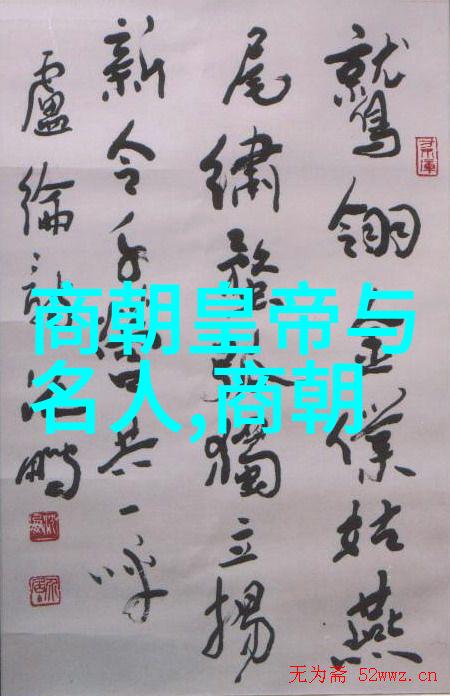 鷲翎金僕姑燕
尾繡蝥弧獨立揚
新令千營共一呼
盧綸詩沈鵬
商朝皇帝与
名人,商朝
无为斋 52wwz.cn